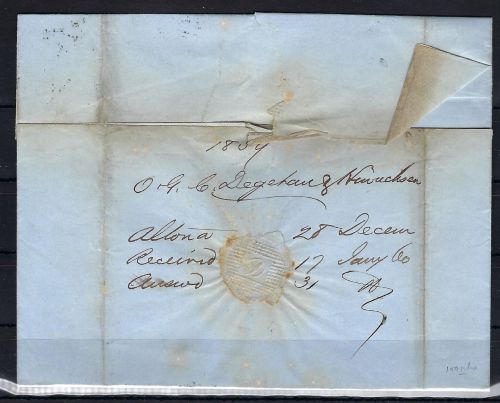 1859
O. G. C. Degetau & Hinrichsen
Altona 28 Decem
Received 17 Jany 60
Answd 31 "